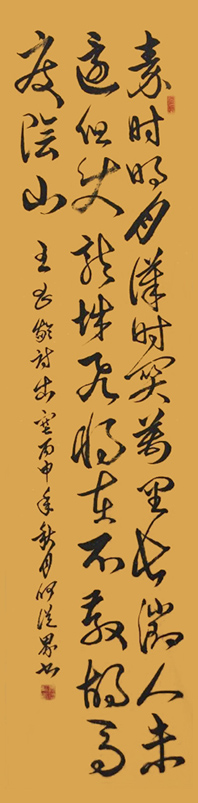 秦时明月漢时关萬里长征人未
還但使龙城飞将在不教胡马
度陰山
王昌龄诗出塞丙申年秋月